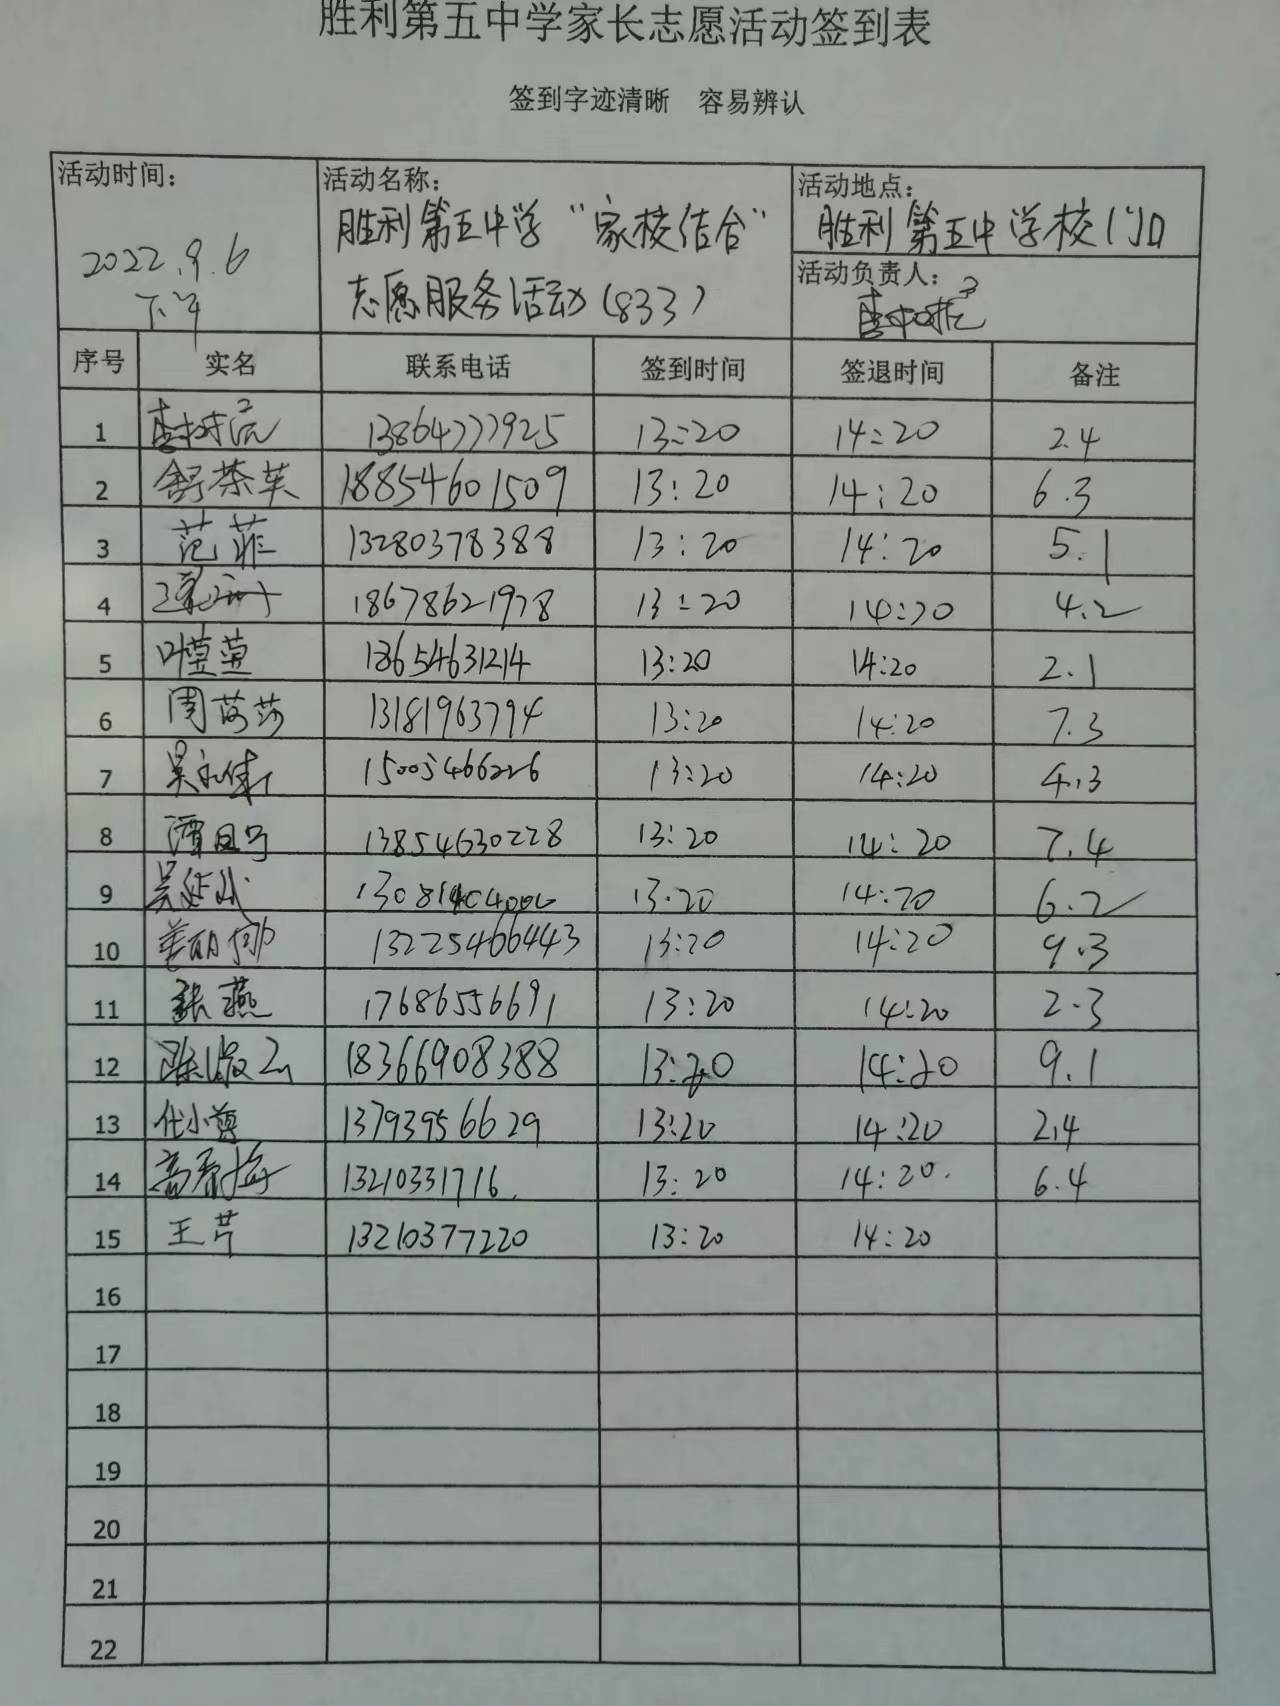 胜利第五中学家长志愿活动签到表
签到字迹清晰 容易辨认
活动时间：
2022.9.6
下午
活动名称：
胜利第五中学“家校结合”
志愿服务活动(833)
活动地点：
胜利第五中学校门口
活动负责人：
序号 实名 联系电话 签到时间 签退时间 备注
1 13864777925 13:20 14:20 2.4
2 舒荣芙 18854601509 13:20 14:20 6.3
3 范菲 13280378388 13:20 14:20 5.1
4 18678621978 13:20 14:20 4.2
5 叶萱萱 18654631214 13:20 14:20 2.1
6 周莎莎 13181963794 13:20 14:20 7.3
7 15005466226 13:20 14:20 4.3
8 13854630228 13:20 14:20 7.4
9 13:20 14:20 6.2
10 姜丽娜 13225466443 13:20 14:20 9.3
11 张燕 17686556691 13:20 14:20 2.3
12 18366908388 13:20 14:20 9.1
13 13793956629 13:20 14:20 2.4
14 高春梅 13210331716. 13:20 14:20. 6.4
15 王芹 13210377220 13:20 14:20
16
17
18
19
20
21
22